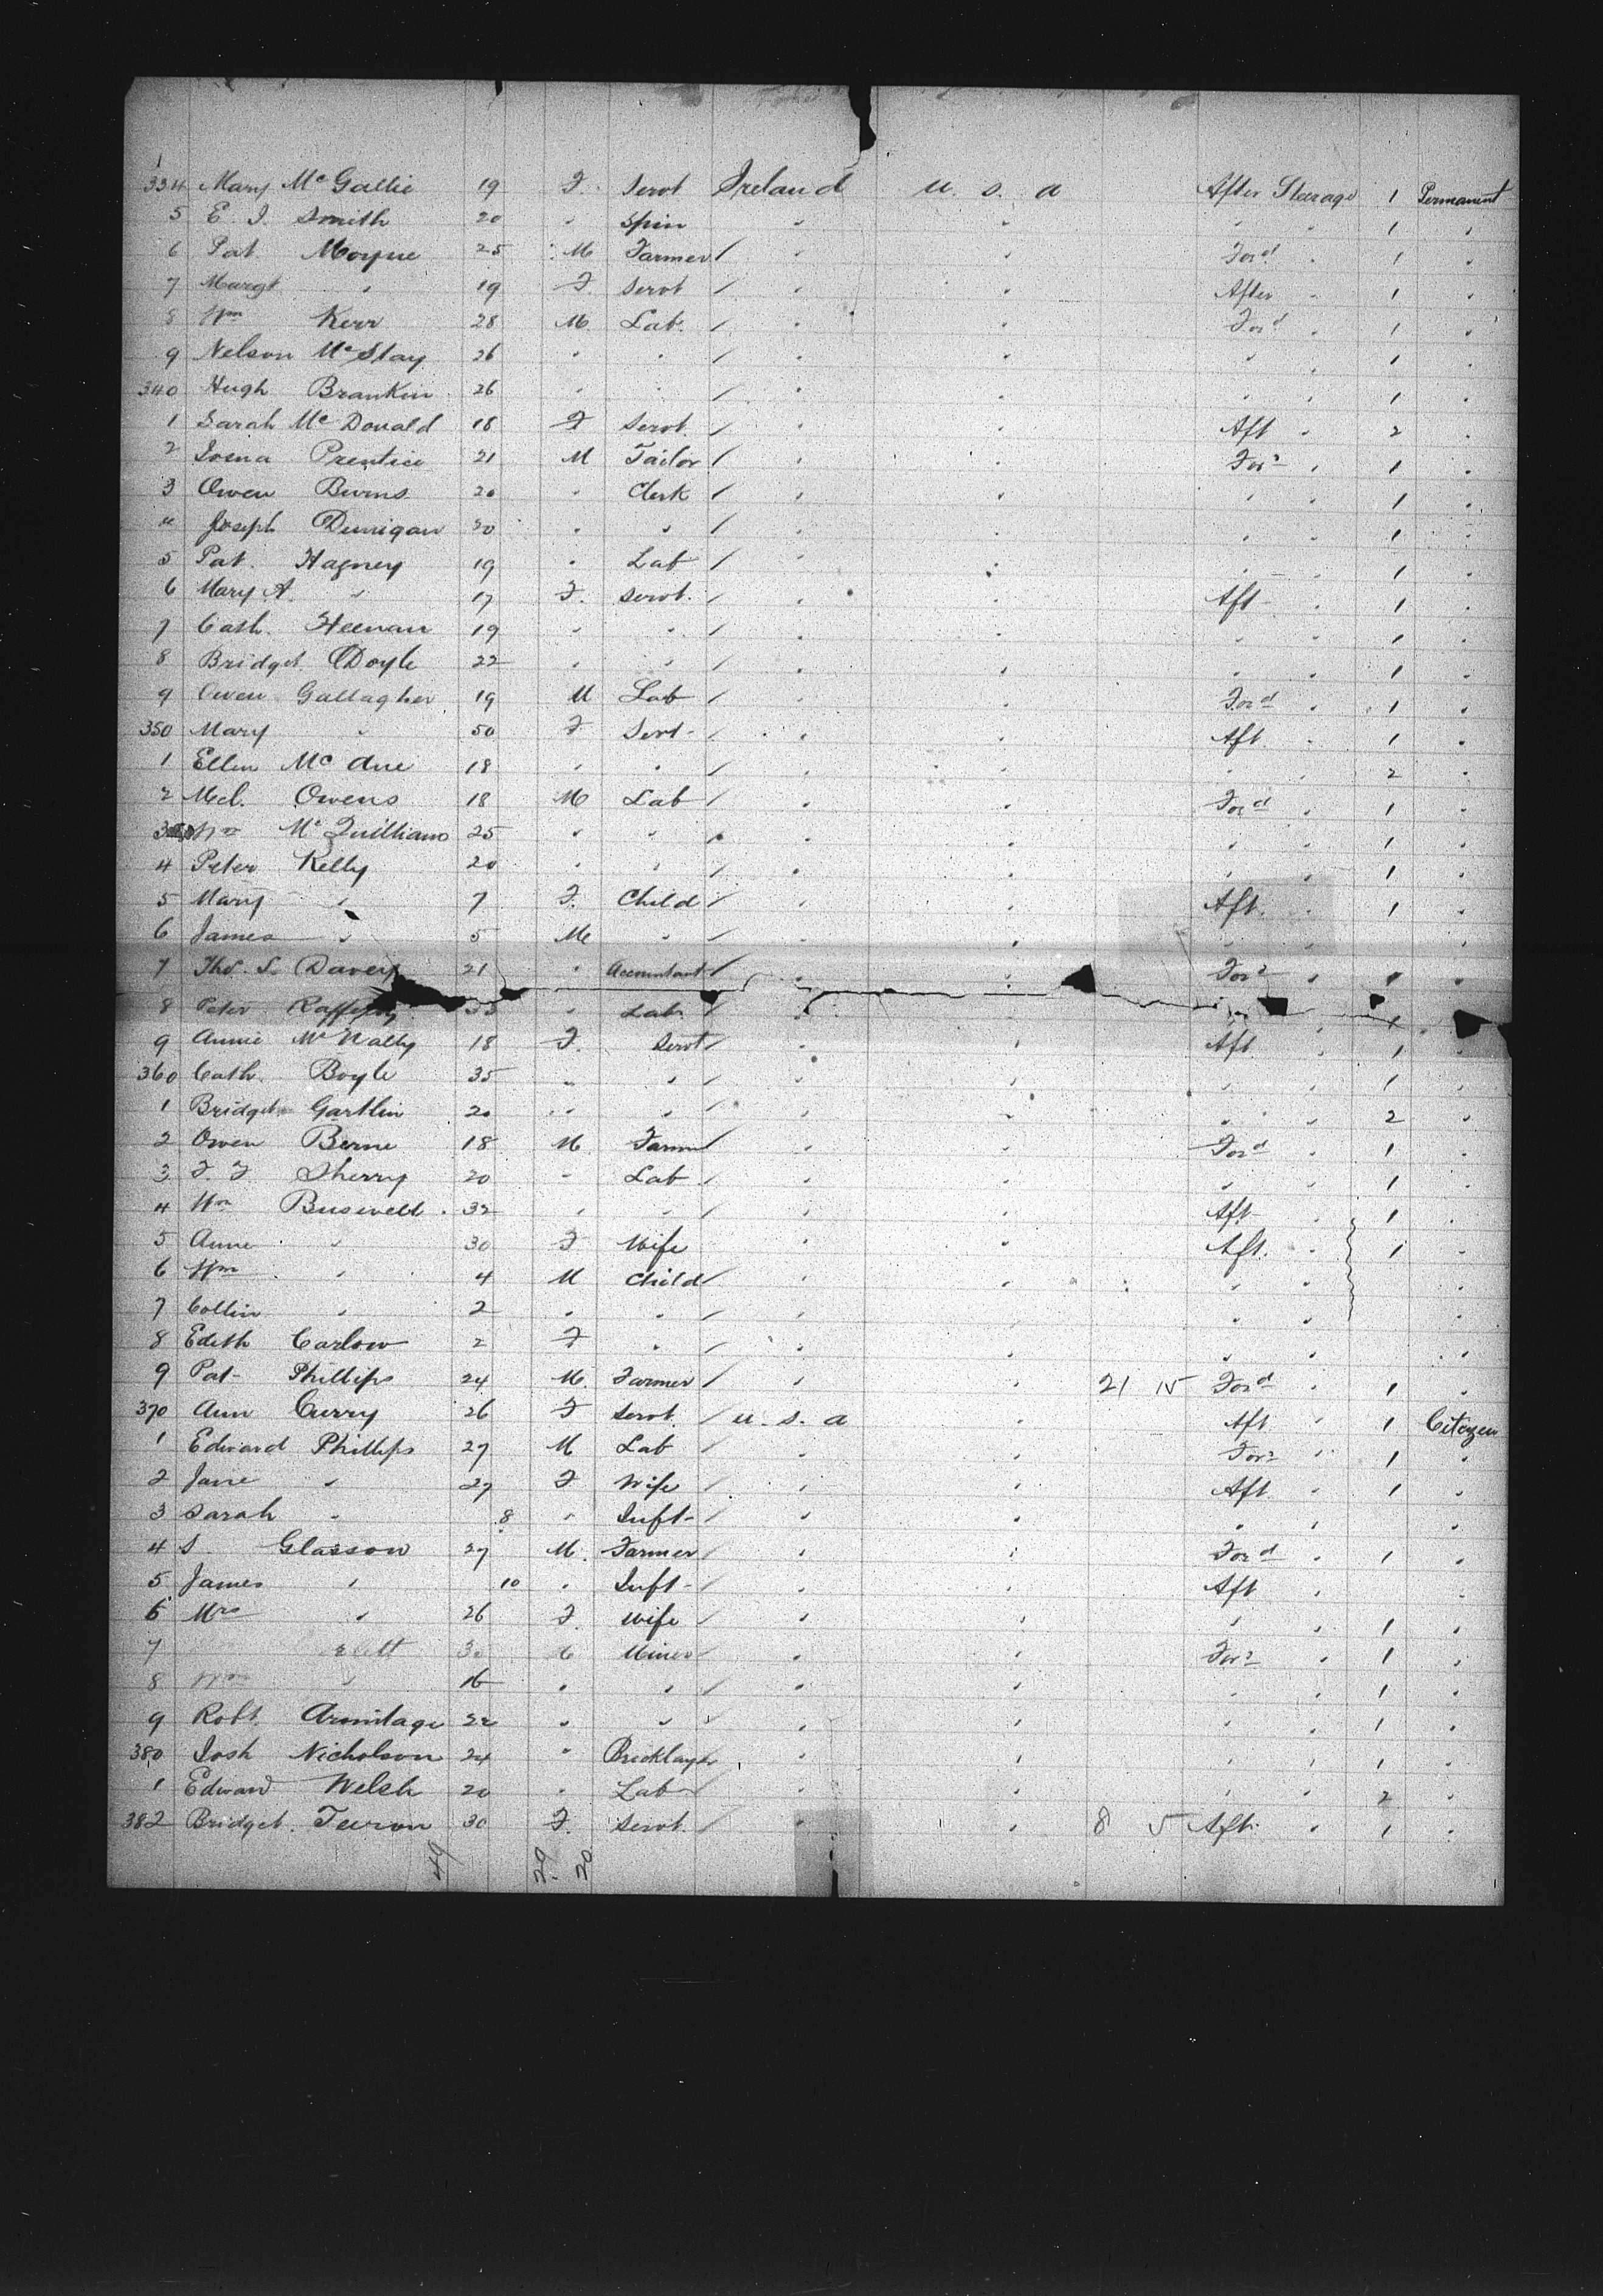 334 Mary McGallie 19 F. Servt Ireland U. S. A After Steerage 1 Permanent
5 E. J. Smith 20 " Spin " " " " 1 "
6 Pat Moyne 25 M Farmer / " " Ford " 1 "
7 Margt " 19 F. Servt / " " After " 1 "
8 Wm Kerr 28 M. Lab. / " " Ford " 1 "
9 Nelson McStay 26 " " / " " " " 1 "
340 Hugh Brankin 26 " " / " " " " 1 "
1 Sarah McDonald 18 F Servt. / " " Aft " 2 "
2 Prentice 21 M Tailor / " " Ford " 1 "
3 Owen Burns 20 " Clerk / " " " " 1 "
4 Joseph Dunigan 20 " " / " " " " 1 "
5 Pat. Hagney 19 " Lab / " " " " 1 "
6 Mary A. " 17 F. Servt. / " " Aft " 1 "
7 Cath. Heenan 19 " " / " " " " 1 "
8 Bridget Doyle 22 " " / " " " " 1 "
9 Owen Gallagher 19 M Lab / " " Ford " 1 "
350 Mary " 50 F Servt / " " Aft. " 1 "
1 Ellen McAne 18 " " / " " " " 2 "
2 Mcl. Owens 18 M Lab / " " Ford " 1 "
3 Wm McQuilliams 25 " " / " " " " 1 "
4 Peter Kelly 20 " " / " " " " 1 "
5 Mary " 7 F. Child / " " Aft. " 1 "
6 James " 5 M " / " " " " "
7 Thos. S. Davey 21 " Accountant / " " Ford " 1 "
8 Peter " Lab / 1
9 Annie McNally 18 F. Servt / " " Aft " 1 "
360 Cath. Boyle 35 " " / " " " " 1 "
1 Bridget Gartlin 20 " " / " " " " 2 "
2 Owen Berne 18 M. Farmr / " " Ford " 1 "
3 F. F Sherry 20 " Lab / " " " " 1 "
4 Wm Buswell 32 " " / " " Aft " 1 "
5 Anne " 30 F Wife " " Aft. " 1 "
6 Wm " 4 M Child / " " " " "
7 Collin " 2 " " / " " " " "
8 Edith Carlow 2 F " / " " " " "
9 Pat Phillips 24 M. Farmer / " " 21 15 Ford " 1 "
370 Ann Curry 26 F Servt. / U. S. A " Aft " 1 Citezen
1 Edward Phillips 27 M Lab / " " Ford " 1 "
2 Jane " 27 F Wife / " " Aft " 1 "
3 Sarah " 8 " Inft / " " " " "
4 S. Glasson 27 M. Farmer / " " Ford " 1 "
5 James " 10 " Inft / " " Aft " "
6 Mrs " 26 F. Wife / " " " " 1 "
7 30 M Miner " " Ford " 1 "
8 Wm " 16 " " / " " " " 1 "
9 Robt. Armitage 22 " " / " " " " 1 "
380 Josh Nicholson 24 " Bricklayer " " " " 1 "
1 Edward Welsh 20 " Lab / " " " " 2 "
382 Bridget. 30 F. Servt. / " " 8 5 Aft. " 1 "
49 29 20